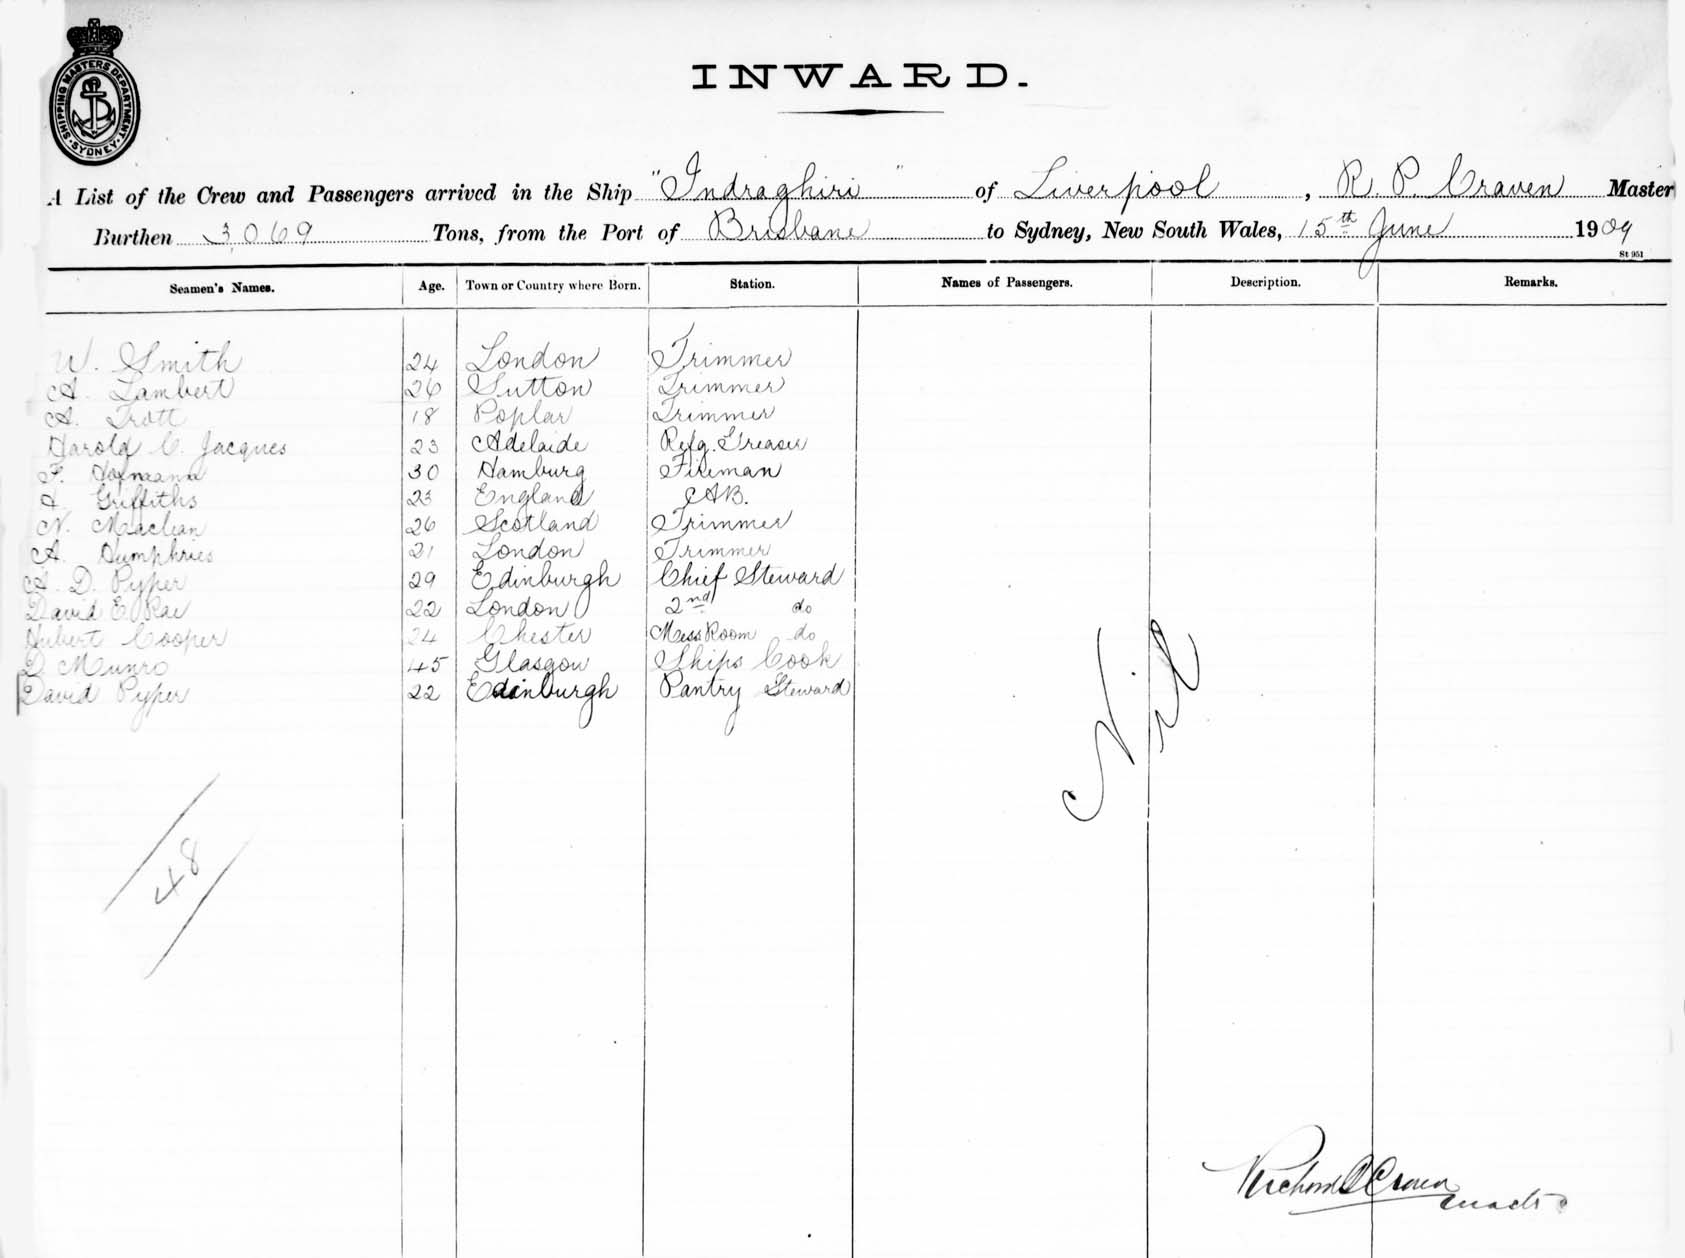 SHIPPING MASTERS DEPARTMENT. SYDNEY.
INWARD.
A List of the Crew and Passengers arrived in the Ship "Indraghiri" of Liverpool, R. P. Craven Master
Burthen 3,069 Tons, from the Port of Brisbane to Sydney, New South Wales, 15th June 1909
St 951
Seamen's Names. Age. Town or Country where Born. Station. Names of Passengers. Description. Remarks.
W. Smith 24 London Trimmer
A. Lambert 26 Sutton Trimmer
A. Trott 18 Poplar Trimmer
Harold C. Jacques 23 Adelaide Refg. Greaser
F. 30 Hamburg Fireman
Griffiths 23 England A.B.
N. Maclean 26 Scotland Trimmer
A. Humphries 21 London Trimmer
A. D. Pyper 29 Edinburgh Chief Steward
David E. Rae 22 London 2nd do
Hubert Cooper 24 Chester Mess Room do
D. Munro 45 Glasgow Ships Cook
David Pyper 22 Edinburgh Pantry Steward
Nil
48
Richard P Craven
Master